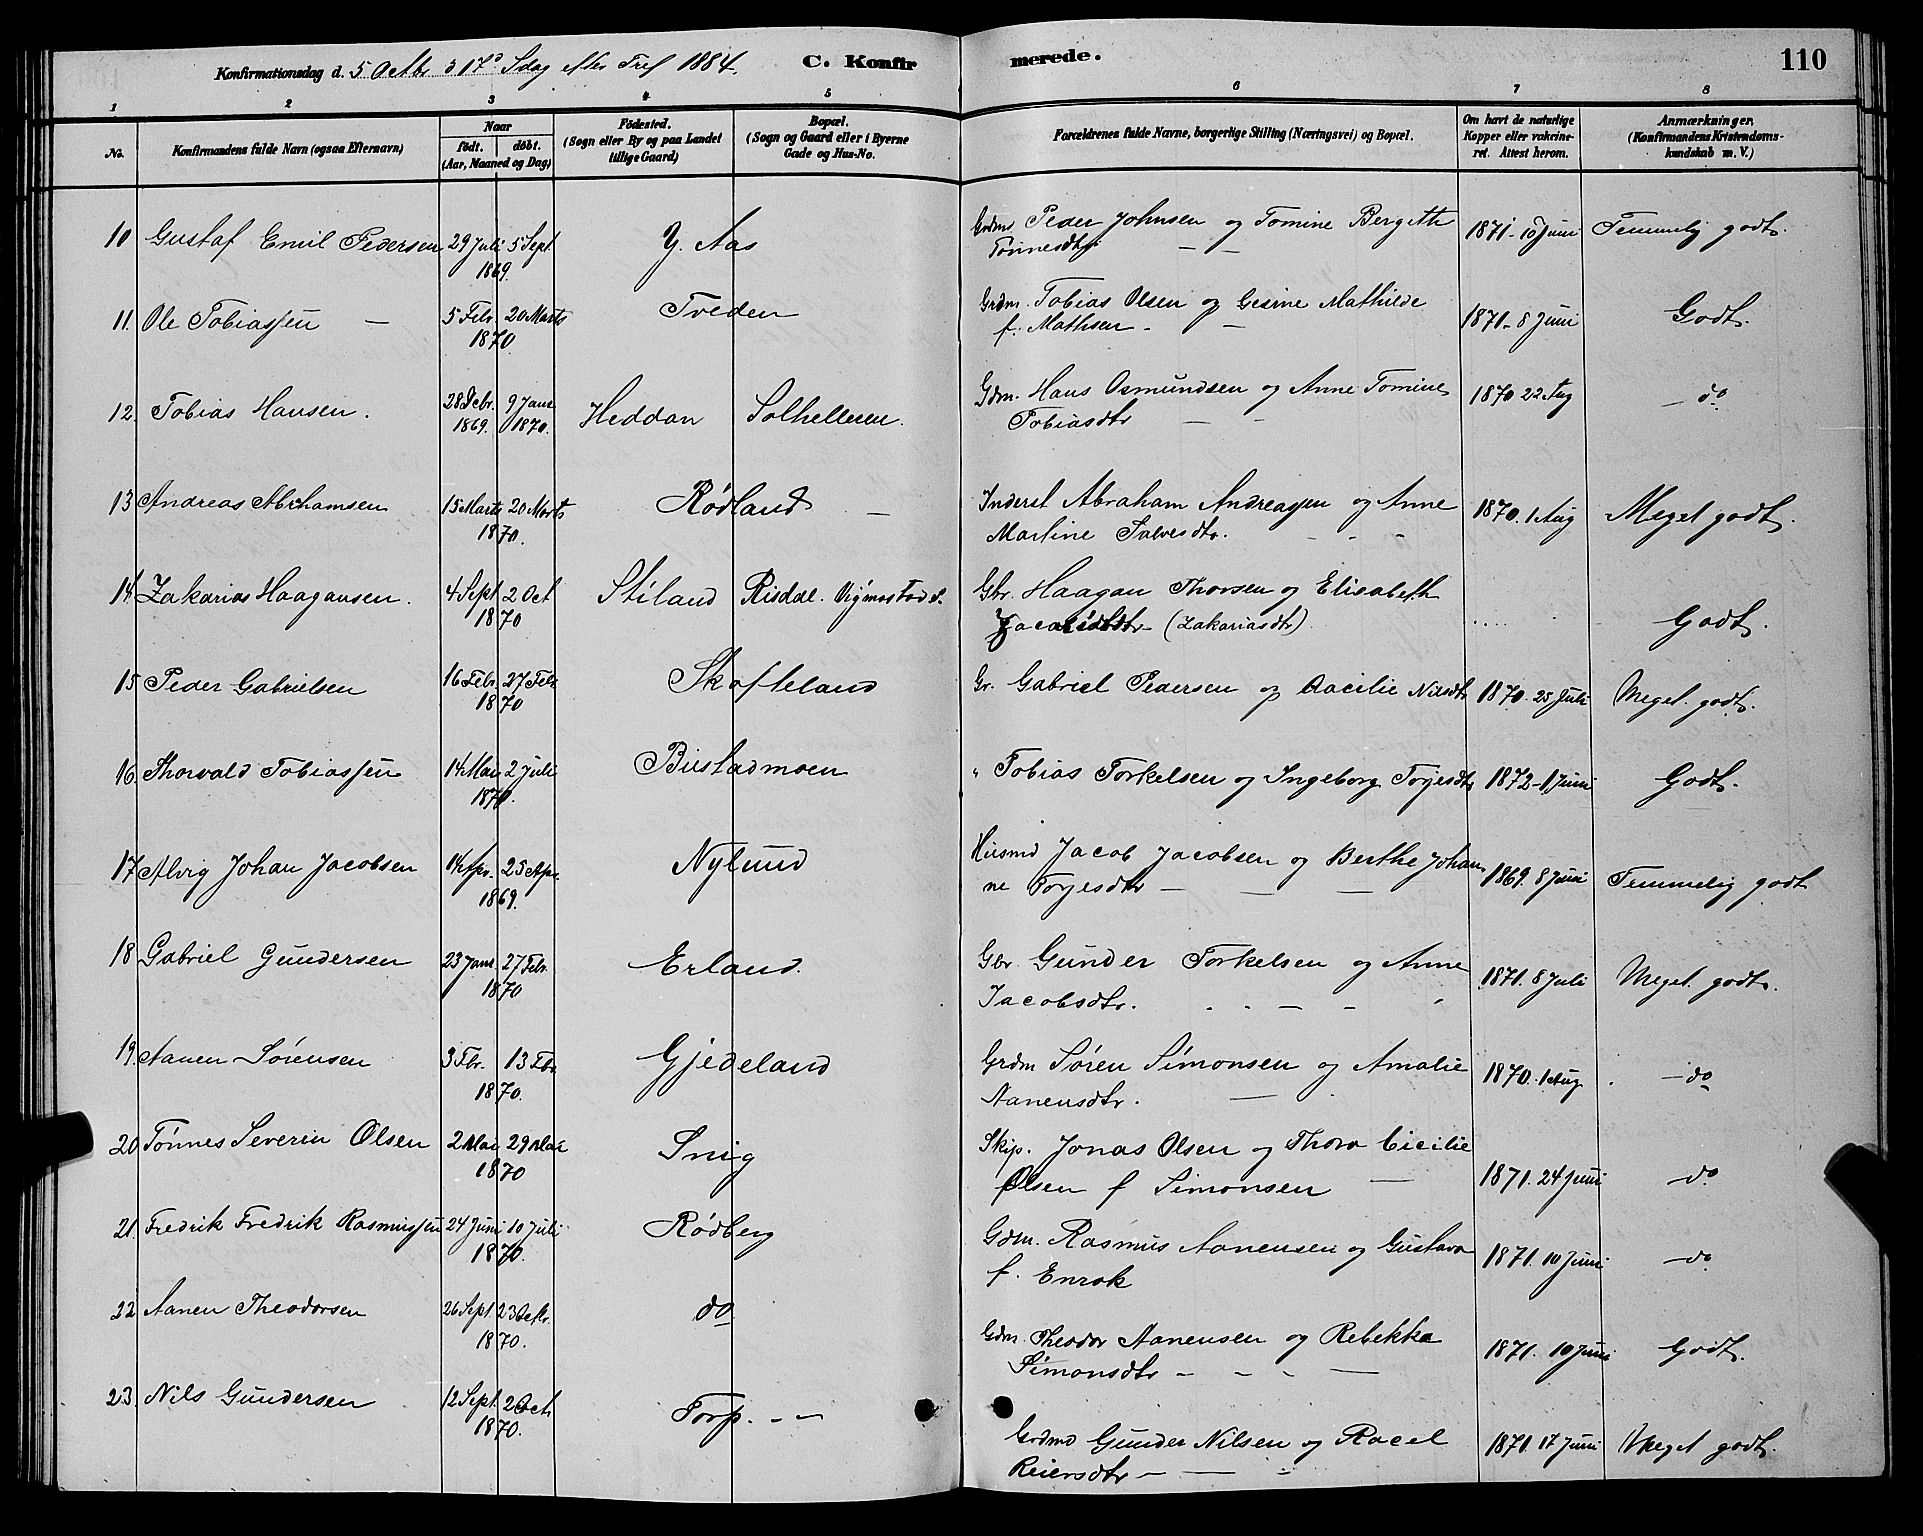 Konfirmationsdag d. 5 Octbr ɔ 17d Sdag efter Tref 1884. C. Konfirmerede. 110
1 2 3 4 5 6 7 8
No. Konfirmandens fulde Navn (ogsaa Efternavn) Naar födt. döbt. (Aar, Maaned og Dag) Födested. (Sogn eller By og paa Landet tillige Gaard) Bopæl. (Sogn og Gaard eller i Byerne Gade og Hus-No. Forældrenes fulde Navne, borgerlige Stilling (Næringsvei) og Bopæl. Om havt de naturlige Kopper eller vakcineret. Attest herom. Anmærkninger, (Konfirmandens Kristendomskundskab m. V.)
10 Gustaf Emil Pedersen 29 Juli 5 Sept 1869. Y. Aas Grdm. Peder Johnsen og Tomine Bergethe 1871 - 10 Juni Temmelig godt.
Tønnesdtr — —
11. Ole Tobiassen — 5 Febr. 20 Marts 1870. Tveden Grdm. Tobias Olsen og Gesine Mathilde 1871 - 8 Juni Godt.
f. Mathsen - —
12. Tobias Hansen. 28 Debr. 1869. 9 Janr 1870. Heddan Solhelleren. Gdm. Hans Osmundsen og Anne Tomine 1870 22 Aug — do
Tobiasdtr — -
13 Andreas Abrhamsen 15 Marts 20 Marts 1870. Rødland — Inderst Abraham Andreassen og Anne 1870. 1 Aug Meget godt.
Martine Salvesdtr. - - -
14. Zakarias Haagansen. 4 Sept 2 Oct 1870 Stiland Risdal. Vigmostad S. Gbr. Haagan Thorsen og Elisabeth Godt.
(Zakariasdtr)
15 Peder Gabrielsen 16 Febr. 27 Febr 1870 Skofteland Gr. Gabriel Pedersen og Aacilie Nilsdtr 1870. 25 Juli Meget godt.
16 Thorvald Tobiassen 14 Mai 2 Juli 1870. Buestadmoen " Tobias Torkelsen og Ingeborg Torjesdtr 1872 - 1 Juni Godt.
17 Alvig Johan Jacobsen 14 Apr. 25 Apr. 1869. Nylund Husmd Jacob Jacobsen og Berthe Johan 1869. 8 Juni Temmelig godt
ne Torjesdtr — — —
18 Gabriel Gundersen 23 Janr. 27 Febr. 1870 Erland. Gbr. Gunder Torkelsen og Anne 1871. 8 Juli Meget godt.
Jacobsdtr. - - — -
19. Aanen Sörensen 3 Fbr. 13 Fbr 1870. Gjedeland Grdm Søren Simonsen og Amalie 1870. 1 Aug. — do
Aanensdtr. —
20 Tønnes Severin Olsen 2 Mai 29 Mai 1870 Snig Skip. Jonas Olsen og Thora Cicilie 1871. 24 Juni — do
Olsen f Simonsen —
21. Fredrik Fredrik Rasmussen 24 Juni 10 Juli 1870. Rødberg Gdm. Rasmus Aanensen og Gustava 1871. 10 Juni — do
f. Enrok
22 Aanen Theodorsen 26 Sept 23 Octbr. 1870. do Gdm. Theodor Aanensen og Rebekka 1871. 10 Juni Godt.
Simonsdtr - - - —
23. Nils Gundersen 12 Sept. 2 Octr 1870. Torp. - - Grdmd Gunder Nilsen og Racel 1871. 17 Juni Meget godt.
Reiersdtr - — -